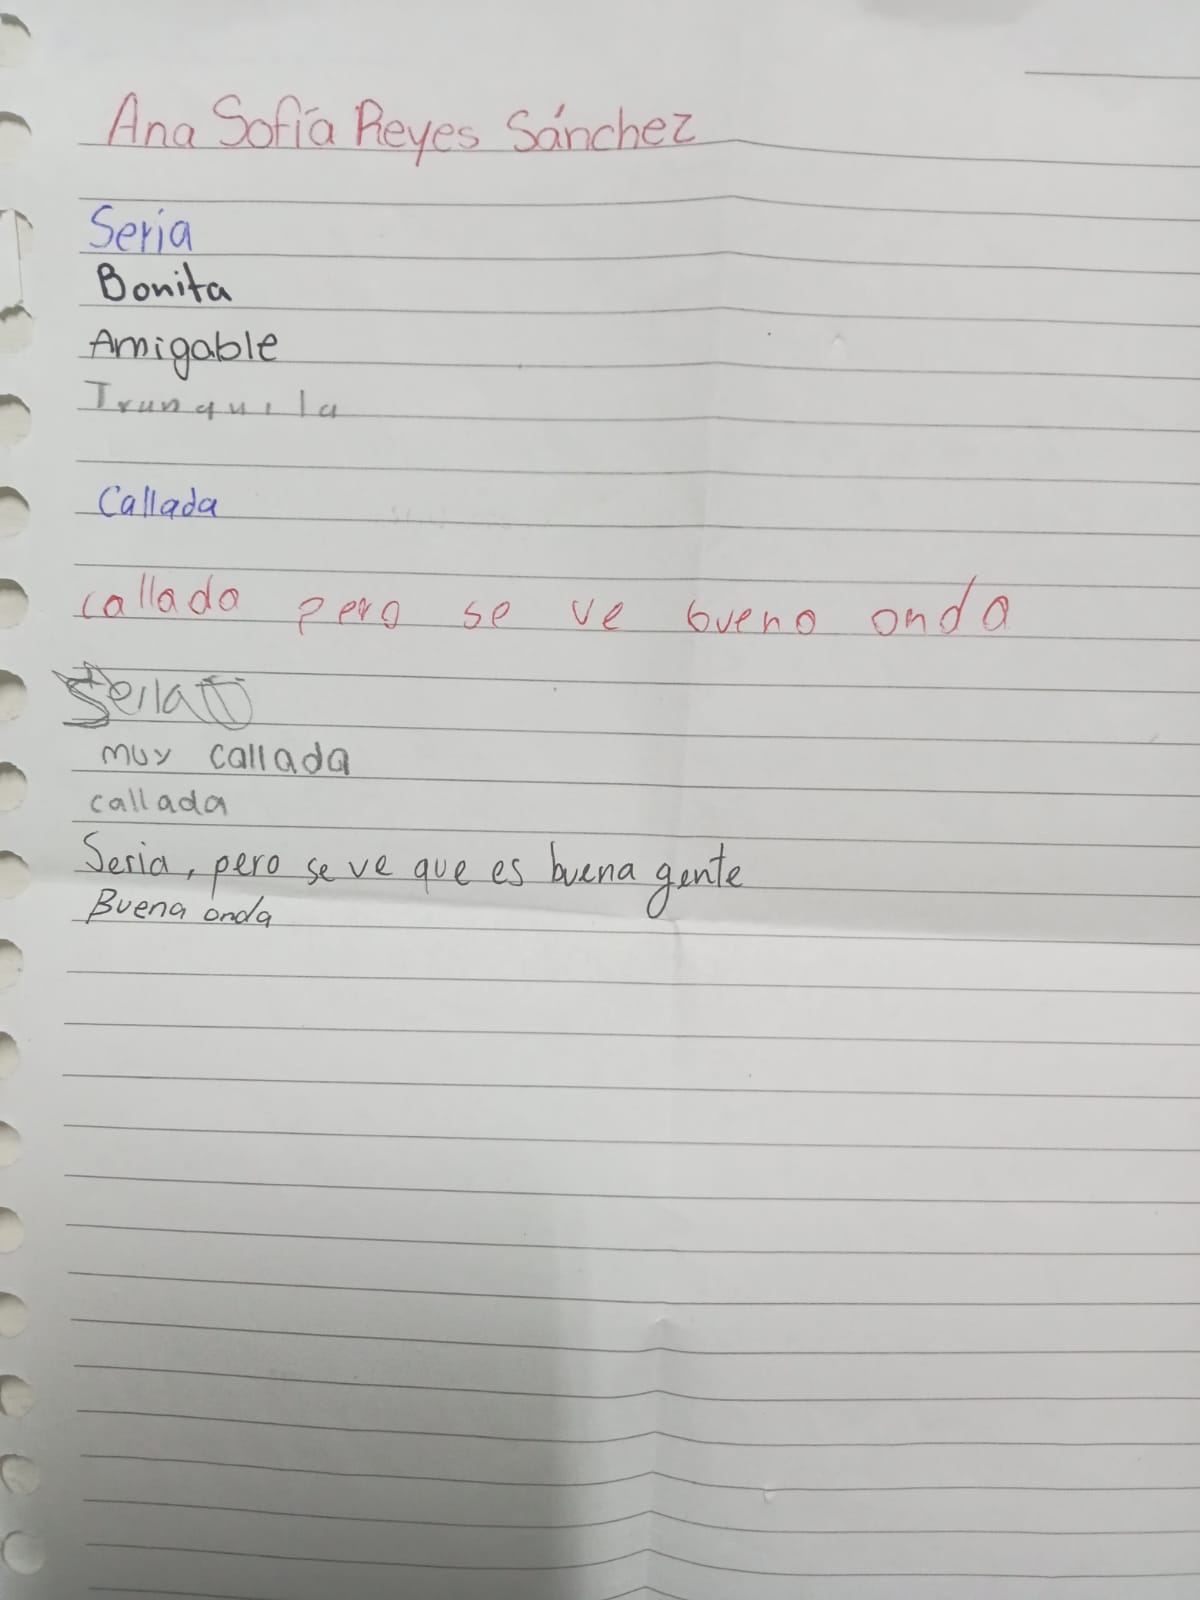 Ana Sofía Reyes Sánchez
Seria
Bonita
Amigable
Tranquila
Callada
callada pero se ve buena onda
Seria
muy callada
callada
Seria, pero se ve que es buena gente
Buena onda